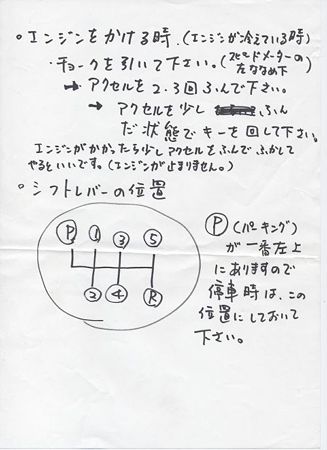 ○ エンジンをかける時.(エンジンが冷えている時)
・チョークを引いて下さい。(スピードメーターの左ななめ下)
→ アクセルを2.3回ふんで下さい。
→ アクセルを少し ふん
だ状態でキーを回して下さい。
エンジンがかかったら少しアクセルをふんでふかして
やるといいです。(エンジンが止まりません。)
○ シフトレバーの位置
P 1 3 5
2 4 R
P (パーキング)
が一番左上
にありますので
停車時は、この
位置にしておいて
下さい。